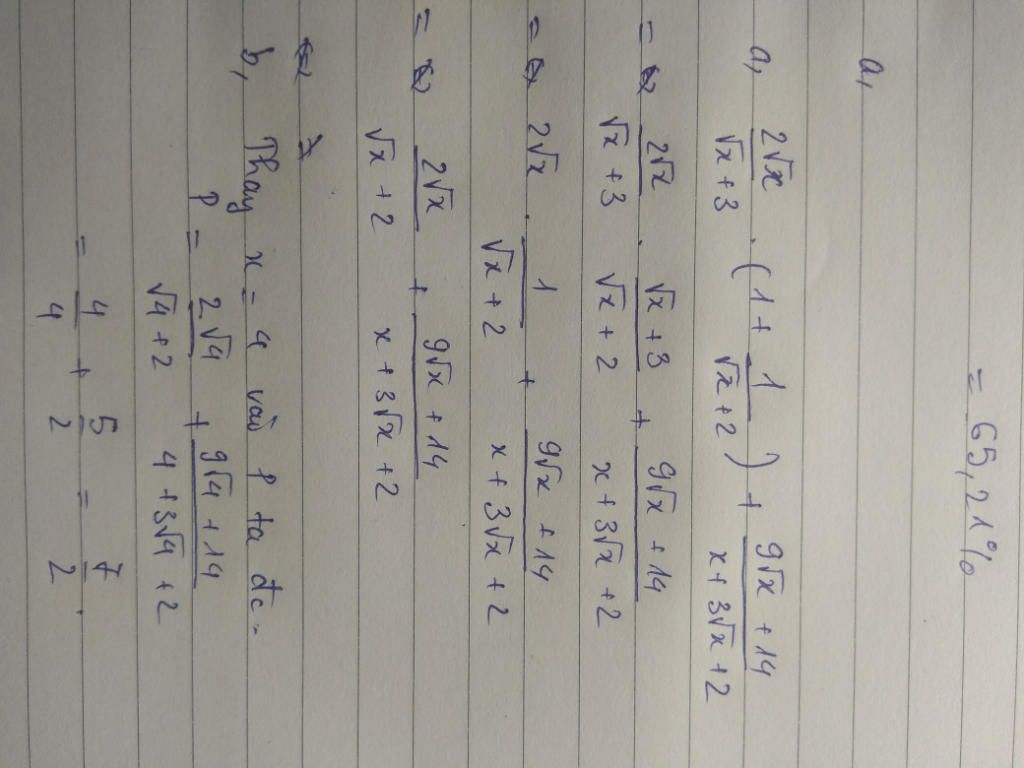 = 65,21%
a,
a, 2√x / (√x + 3) . (1 + 1 / (√x + 2)) + (9√x + 14) / (x + 3√x + 2)
= 2√x / (√x + 3) . (√x + 3) / (√x + 2) + (9√x + 14) / (x + 3√x + 2)
= 2√x . 1 / (√x + 2) + (9√x + 14) / (x + 3√x + 2)
= 2√x / (√x + 2) + (9√x + 14) / (x + 3√x + 2)
b, Thay x = 4 vào P ta đc.
P = 2√4 / (√4 + 2) + (9√4 + 14) / (4 + 3√4 + 2)
= 4/4 + 5/2 = 7/2 .